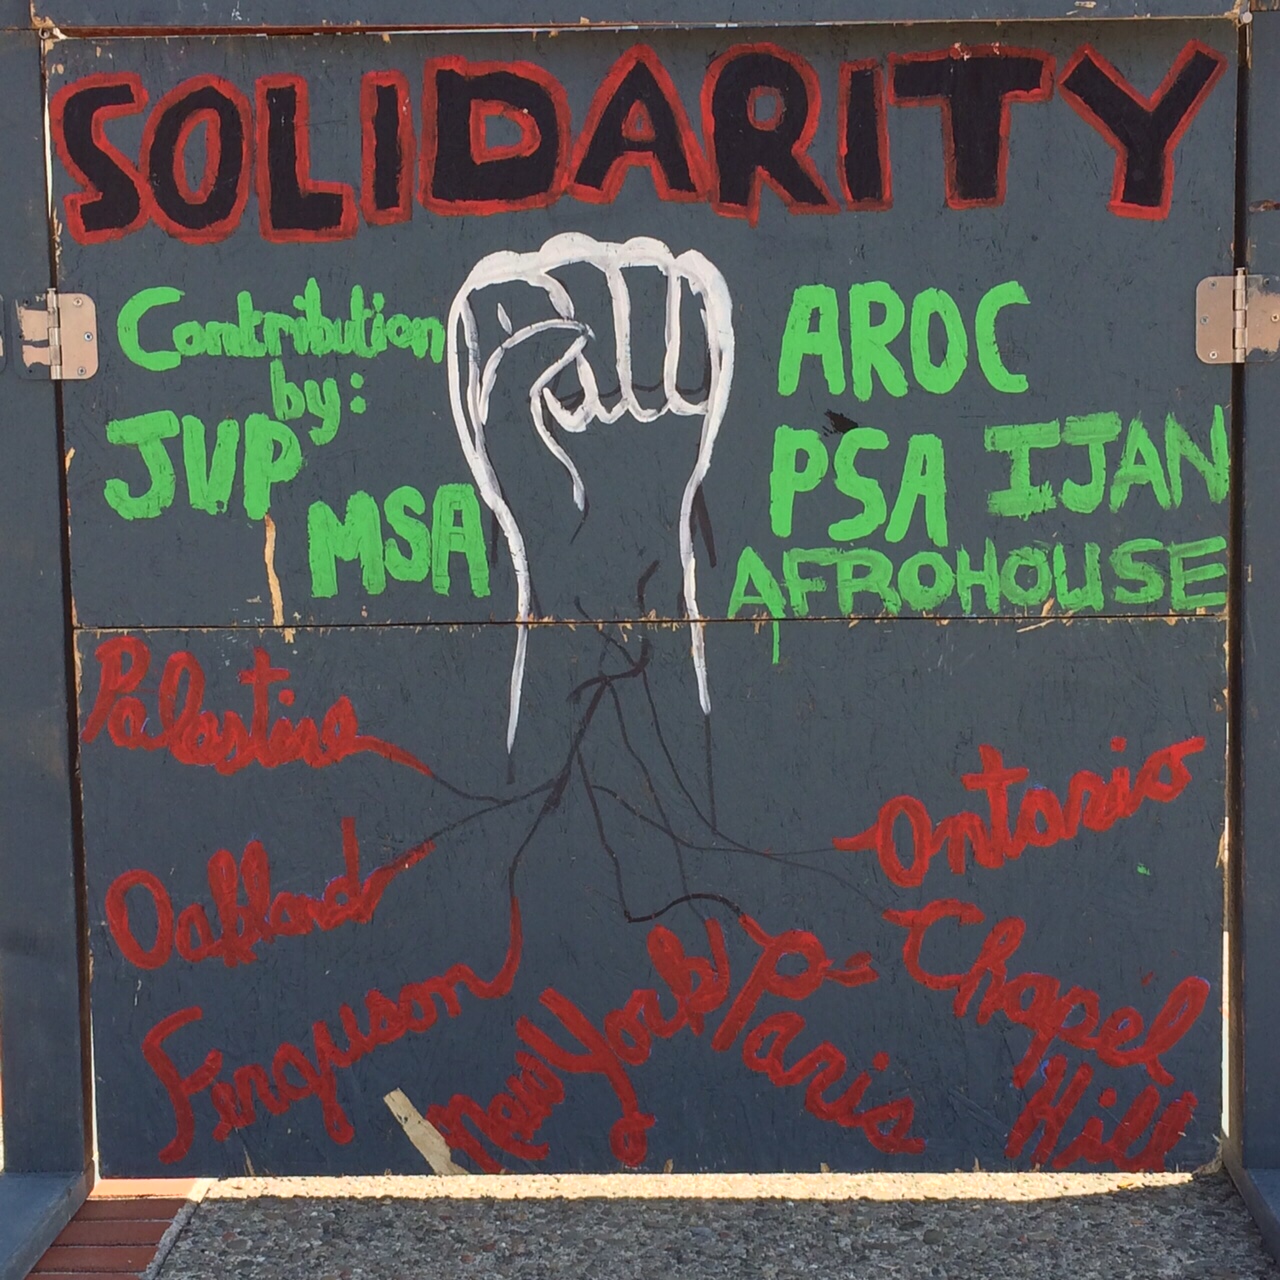 SOLIDARITY
Contribution
by:
JVP
MSA
AROC
PSA IJAN
AFROHOUSE
Palestine
Oakland
Ferguson
New York
Paris
Ontario
Chapel
Hill